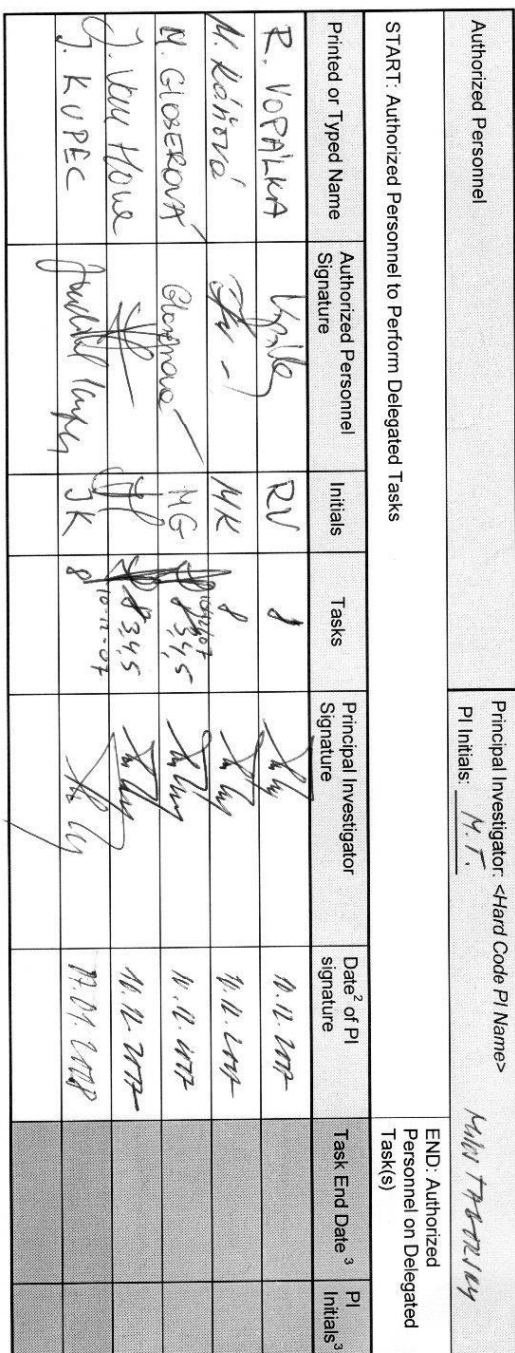 Authorized Personnel
Principal Investigator: <Hard Code PI Name>
PI Initials: M.T.
START: Authorized Personnel to Perform Delegated Tasks
END: Authorized Personnel on Delegated Task(s)
Printed or Typed Name
Authorized Personnel Signature
Initials
Tasks
Principal Investigator Signature
Date² of PI signature
Task End Date ³
PI Initials³
R. VOPÁLKA RV 8 10.12.2007
M. Káňová MK 8 10.12.2007
M. GLOSEROVÁ MG 8 3,4,5 10.12.2007
J. Van Hove 8 3,4,5 10.12.2007
J. KUPEC JK 8 10-12-07 07.01.2008